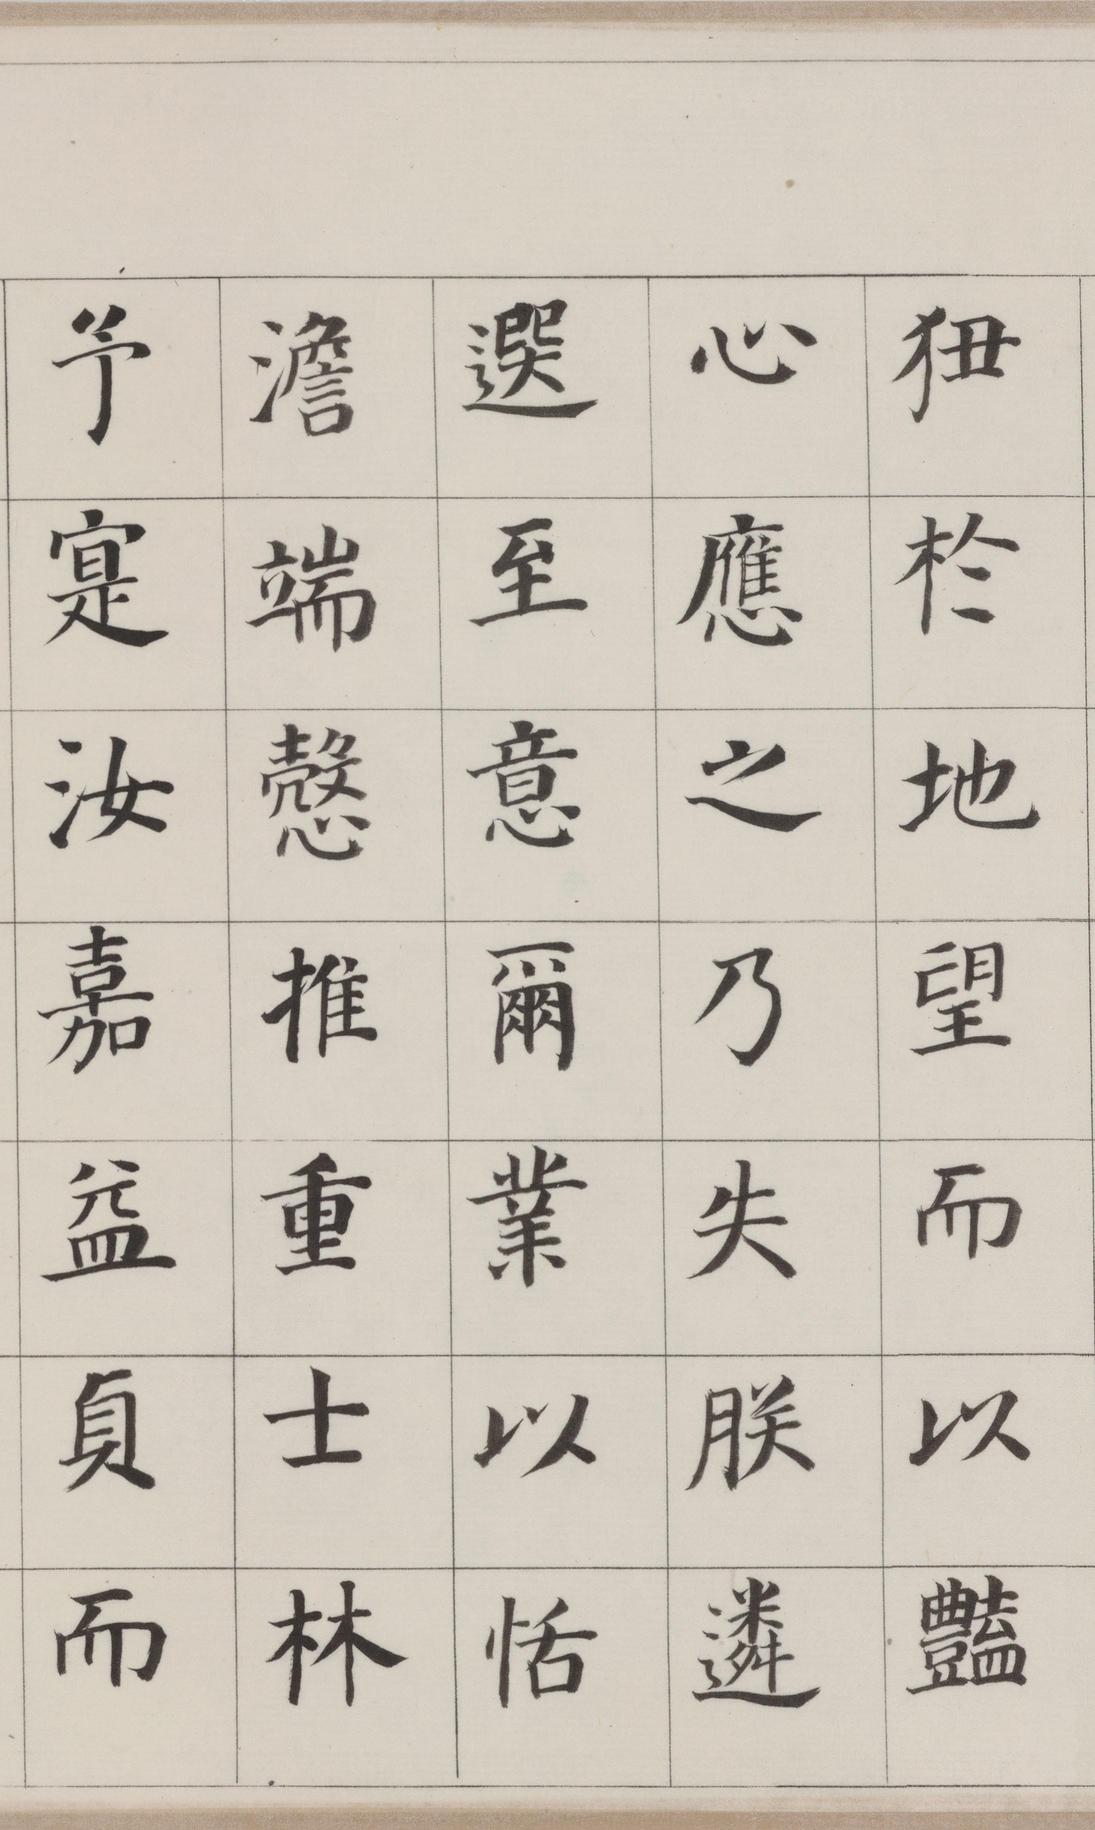 狃於地望而以豔
心應之乃失朕遴
選至意爾業以恬
澹端慤推重士林
予寔汝嘉益貞而